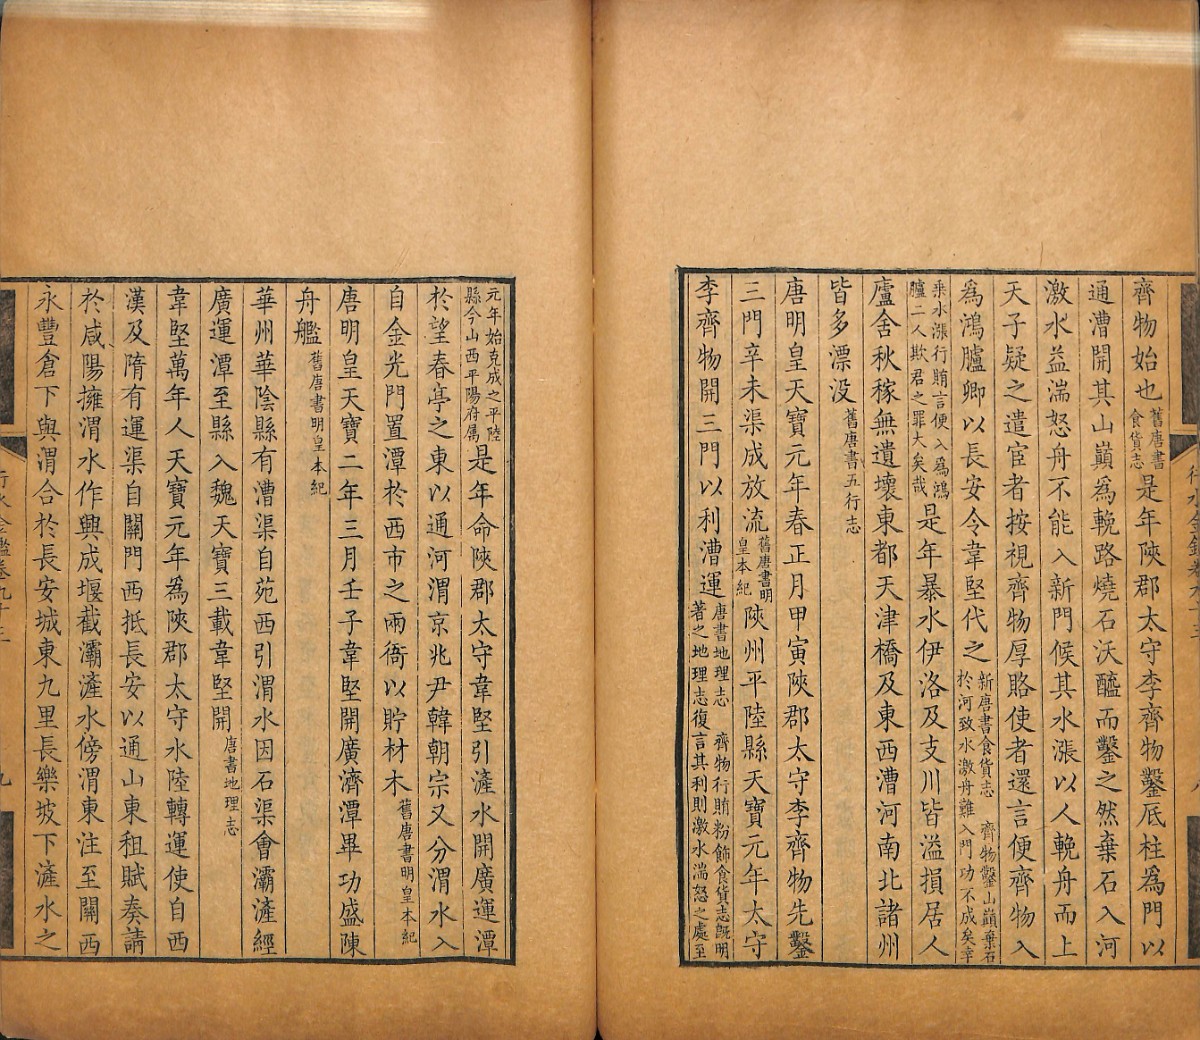 齊物始也舊唐書食貨志是年陝郡太守李齊物鑿底柱為門以
通漕開其山巔為輓路燒石沃醯而鑿之然棄石入河
激水益湍怒舟不能入新門候其水漲以人輓舟而上
天子疑之遣宦者按視齊物厚賂使者還言便齊物入
為鴻臚卿以長安令韋堅代之新唐書食貨志 齊物鑿山巔棄石於河致水激舟難入門功不成矣幸
乘水漲行賄言便入為鴻臚二人欺君之罪大矣哉是年暴水伊洛及支川皆溢損居人
廬舍秋稼無遺壞東都天津橋及東西漕河南北諸州
皆多漂没舊唐書五行志
唐明皇天寶元年春正月甲寅陝郡太守李齊物先鑿
三門辛未渠成放流舊唐書明皇本紀陝州平陸縣天寶元年太守
李齊物開三門以利漕運唐書地理志 齊物行賄粉飾食貨志旣明著之地理志復言其利則激水湍怒之處至
元年始克成之平陸縣今山西平陽府属是年命陝郡太守韋堅引滻水開廣運潭
於望春亭之東以通河渭京兆尹韓朝宗又分渭水入
自金光門置潭於西市之兩衙以貯材木舊唐書明皇本紀
唐明皇天寶二年三月壬子韋堅開廣濟潭畢功盛陳
舟艦舊唐書明皇本紀
華州華陰縣有漕渠自苑西引渭水因石渠會灞滻經
廣運潭至縣入魏天寶三載韋堅開唐書地理志
韋堅萬年人天寶元年為陝郡太守水陸轉運使自西
漢及隋有運渠自關門西抵長安以通山東租賦奏請
於咸陽擁渭水作興成堰截灞滻水傍渭東注至關西
永豐倉下與渭合於長安城東九里長樂坡下滻水之
行水金鑑卷九十三
九